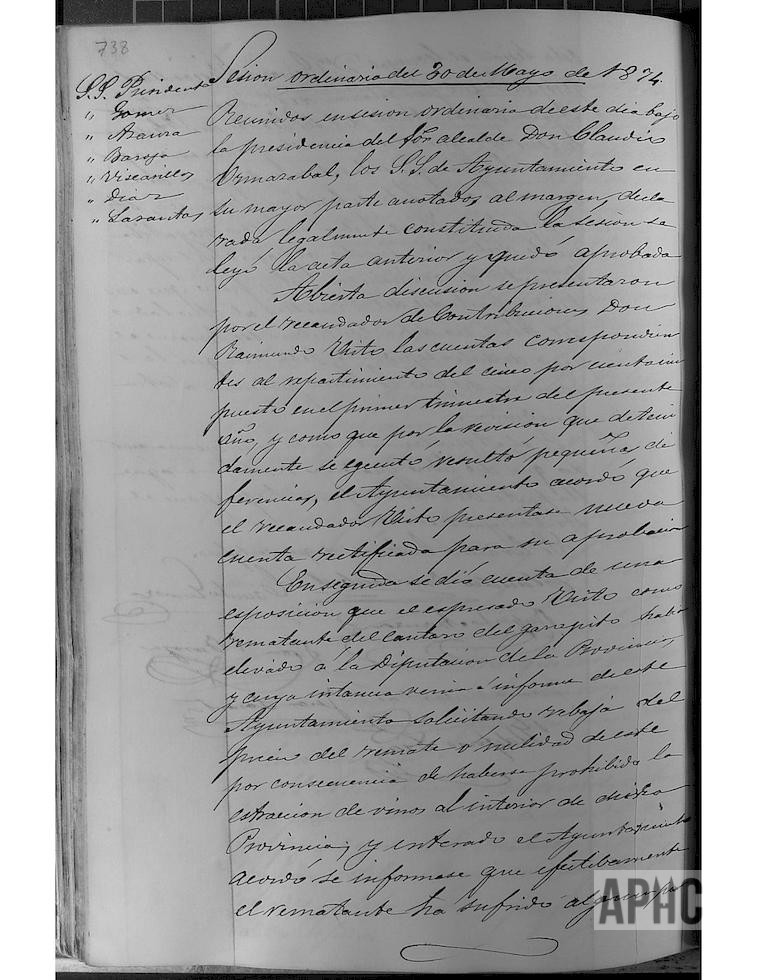 738
Sesion ordinaria del 30 de Mayo de 1874.
S.S. Presidente
" Gomez
" Azaura
" Bareja
" Viscarillos
" Diaz
" Lasantas
Reunidos en sesion ordinaria de este dia bajo
la presidencia del Sor. alcalde Don Claudio
Ormazabal, los S.S. de Ayuntamiento en
su mayor parte anotados al margen, decla
rada legalmente constituida la sesion se
leyó la acta anterior y quedó aprobada
Abierta discusion se presentaron
por el recaudador de Contribuciones Don
Raimundo Visto las cuentas correspondien
tes al repartimiento del cinco por ciento im
puesto en el primer trimestre del presente
año, y como que por la revision que deteni
damente se egecutó resultó pequeñas di
ferencias, el Ayuntamiento acordó que
el recaudador Visto presentase nueva
cuenta rectificada para su aprobacion
Enseguida se dió cuenta de una
esposicion que el espresado Visto como
rematante del cantaro del garapito habia
elevado á la Diputacion de la Provincia,
y cuya instancia venia á informe de este
Ayuntamiento solicitando rebaja del
precio del remate ó nulidad de este
por consecuencia de haberse prohibido la
estraccion de vinos al interior de dicha
Provincia, y enterado el Ayuntamiento
acordó se informase que efectibamente
el rematante ha sufrido algun per
APHC